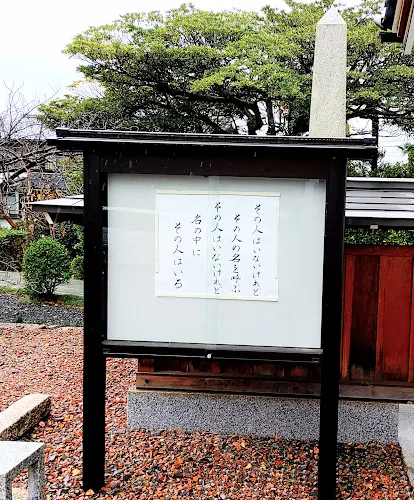 その人はいないけれど
その人の名を呼ぶ
その人はいないけれど
名の中に
その人はいる